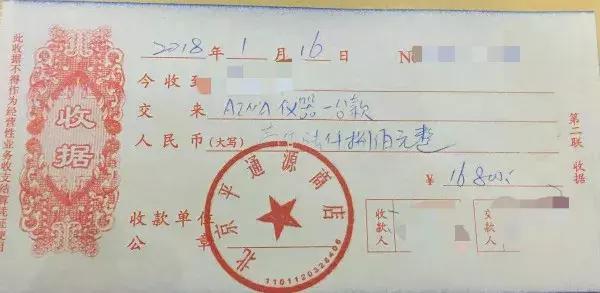 此收据不得作为经营性业务收支结算凭证使用
收据
2018年1月16日 No
今收到
交来 AZNA仪器一台款
人民币(大写) 仟捌佰元整
¥ 16800
收款单位
公章
收款人
交款人
第二联 收据
北京平通源商店
1101120328406